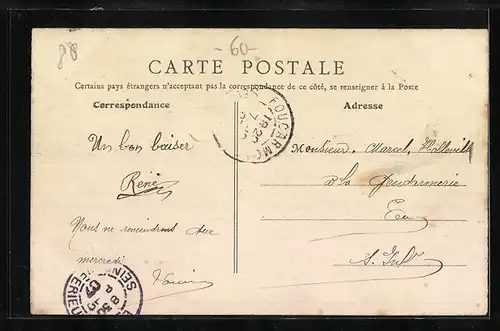 80
-60-
CARTE POSTALE
Certains pays étrangers n'acceptant pas la correspondance de ce côté, se renseignez à la Poste
Correspondance
Adresse
FOUCARM
Un bon baiser
René
Monsieur Marcel
à la Gendarmerie
Eu
S. Infre
Nous ne reviendrons que
mercredi
SEINE